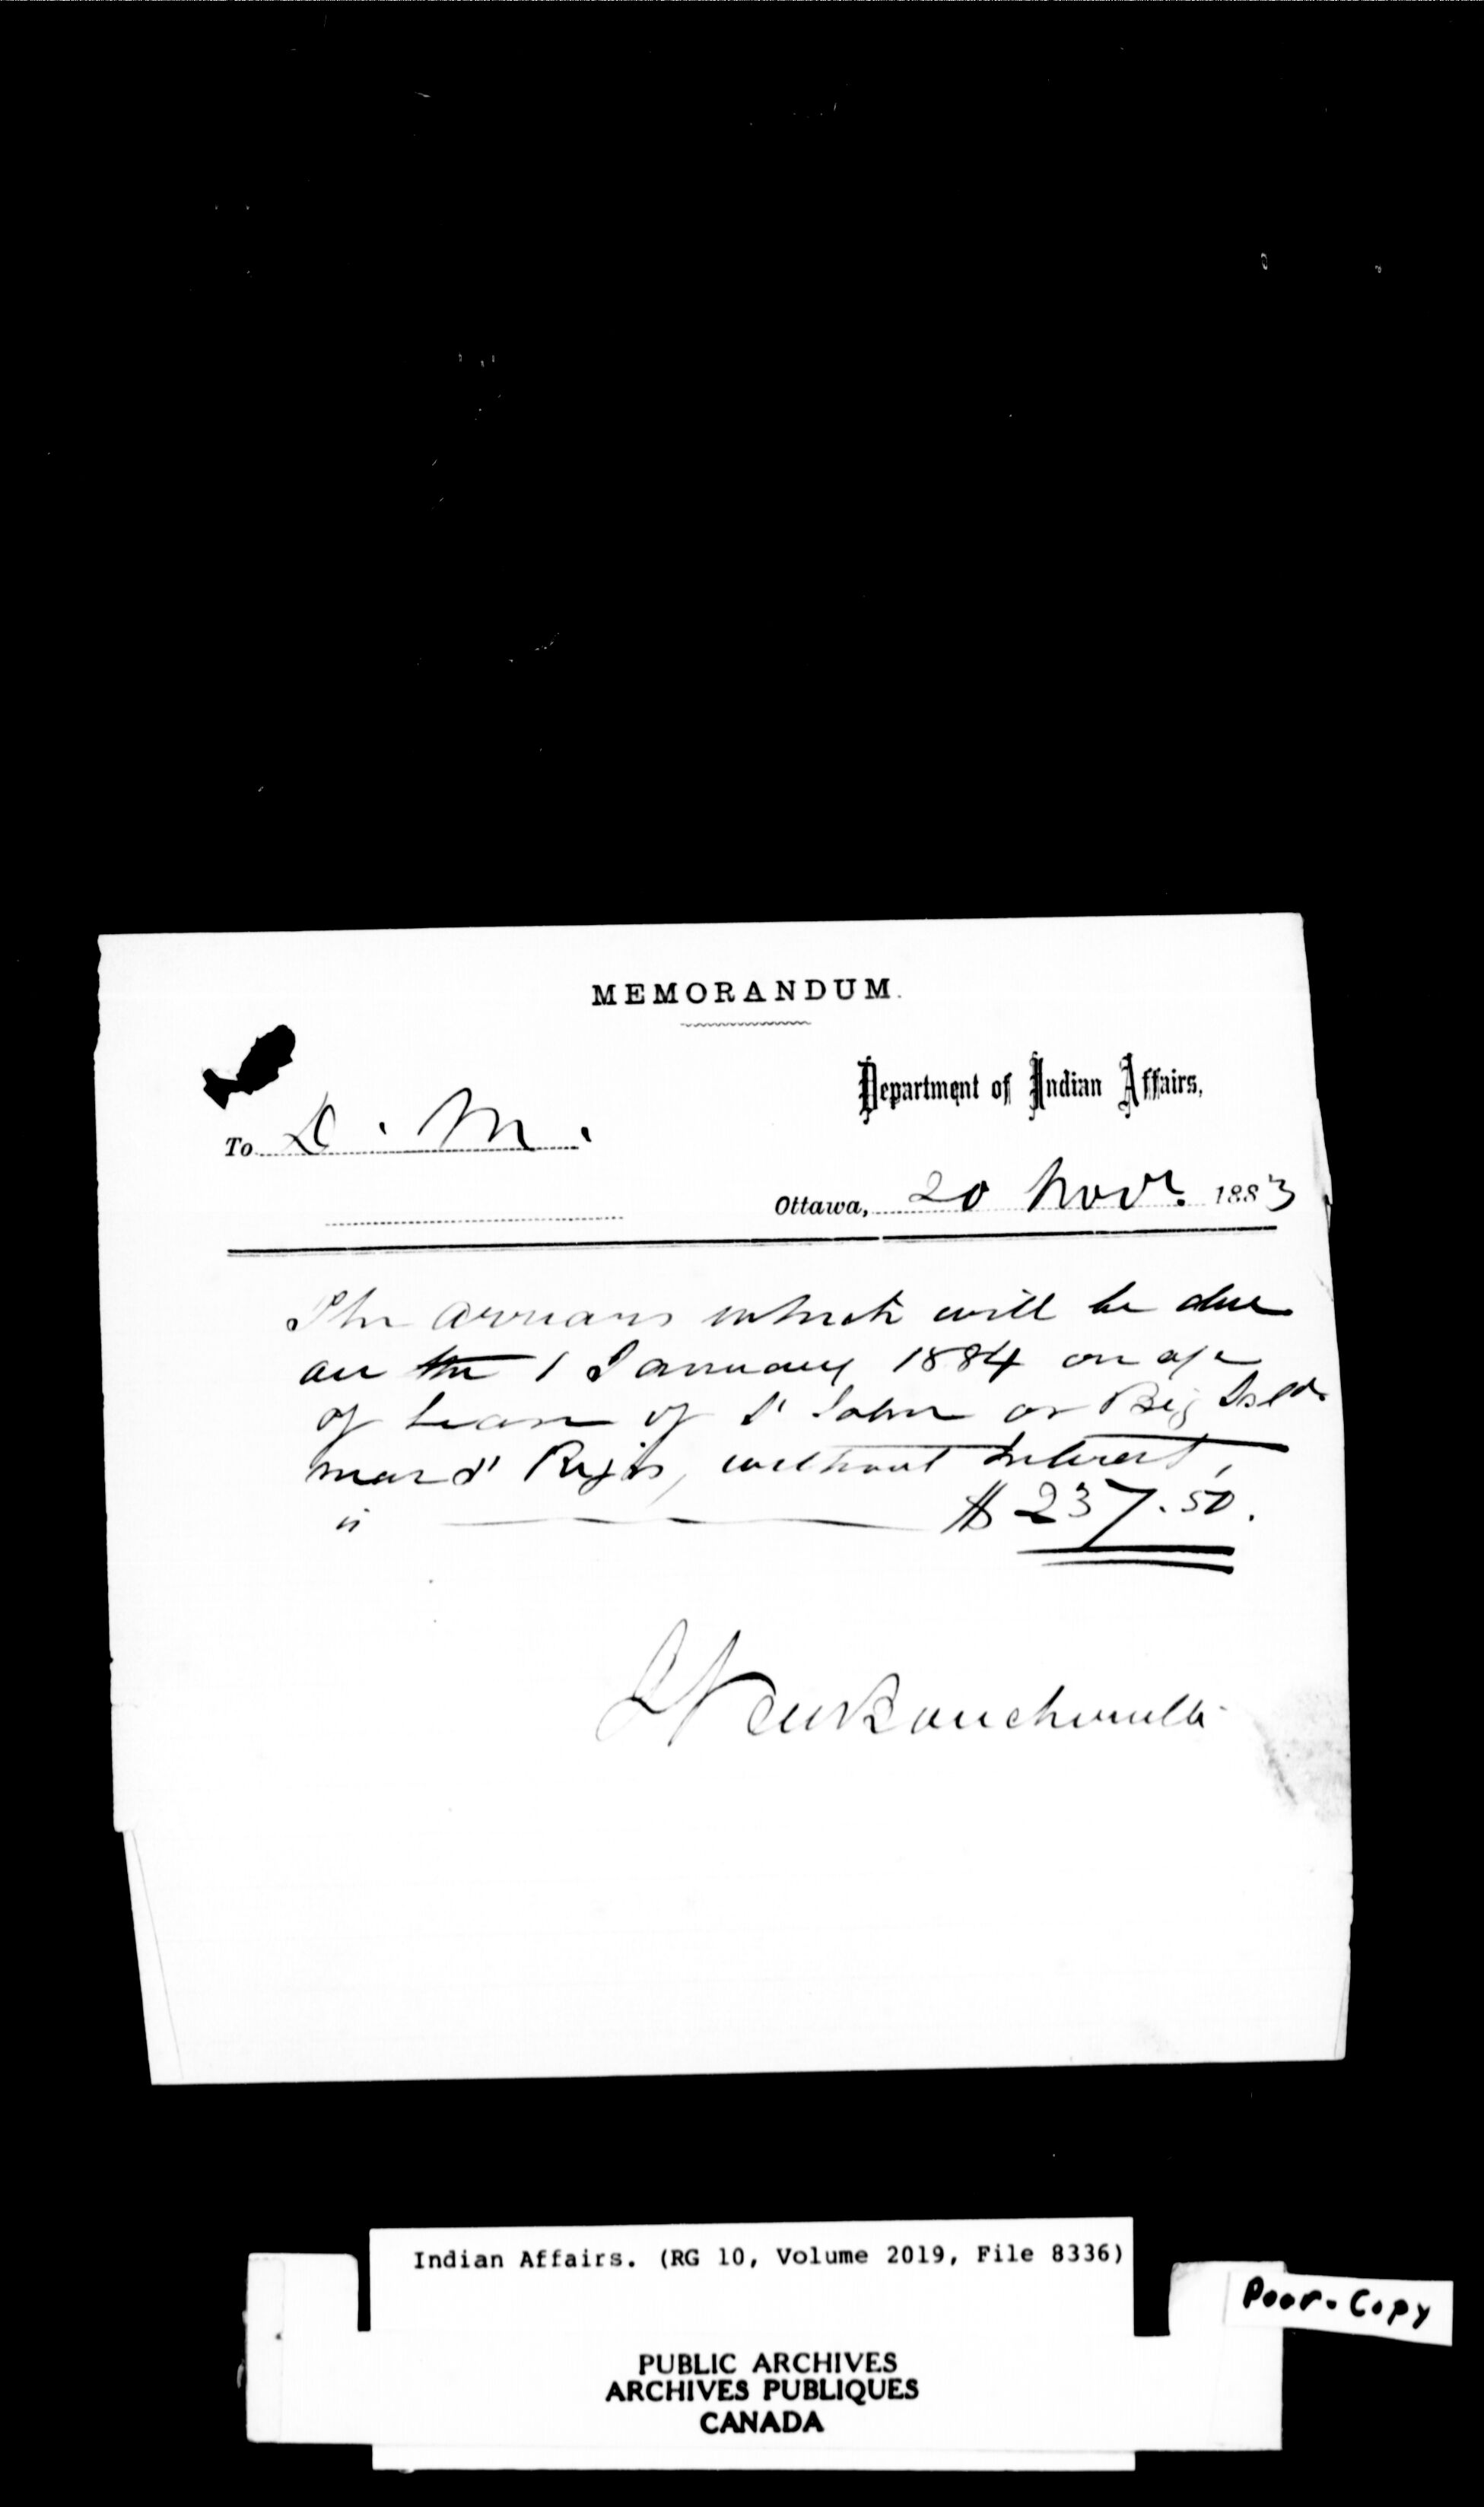 MEMORANDUM.
Department of Indian Affairs,
To D. M.
Ottawa, 20 Novr. 1883
The arrears which will be due
on the 1 January 1884 on a/c
of Lease of St John or Big Isld
near St Regis, without interest,
is $ 237.50.
Indian Affairs. (RG 10, Volume 2019, File 8336)
Poor. Copy
PUBLIC ARCHIVES
ARCHIVES PUBLIQUES
CANADA